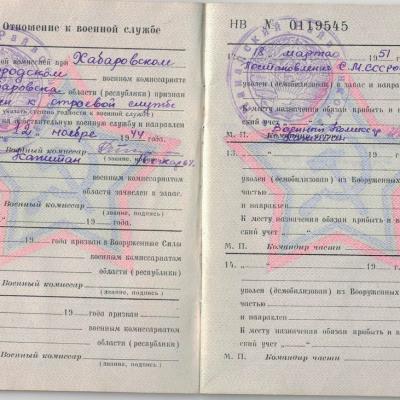 Отношение к военной службе
комиссией при Хабаровском
городском военном комиссариате
области (республики) признан
к строевой службе
указать степень годности к военной службе) и направлен
на действительную военную службу и направлен
22 ноября 1944 года.
Военный комиссар
Капитан
(звание, подпись)
военным комиссариатом
области зачислен в запас.
Военный комиссар
(звание, подпись)
19 года.
19 года призван в Вооруженные Силы
военным комиссариатом
области (республики)
Военный комиссар
(звание, подпись)
19 года призван
военным комиссариатом
области (республики)
Военный комиссар
(звание, подпись)
НВ № 0119545
12. 18 марта 1951
Постановления С.М. СССР
К месту назначения обязан прибыть и в
ский учет
М. П.
Военный Комиссар
13. 19
уволен (демобилизован) из Вооруженных
частью
и направлен
К месту назначения обязан прибыть и в
ский учет „
М. П. Командир части
14. 19
уволен (демобилизован) из Вооруженных
частью
и направлен
К месту назначения обязан прибыть и в
ский учет „
М. П. Командир части